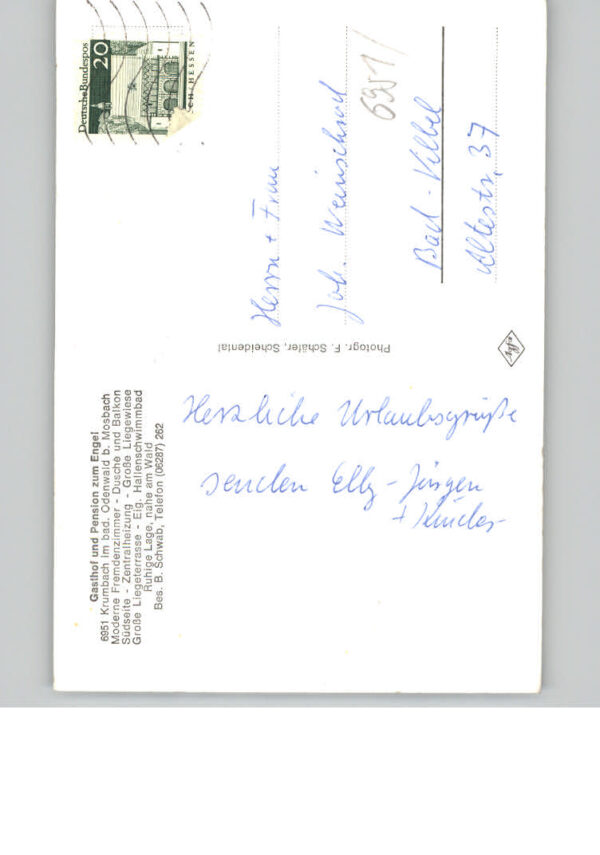 Gasthof und Pension zum Engel
6951 Krumbach im bad. Odenwald b. Mosbach
Moderne Fremdenzimmer - Dusche und Balkon
Südseite - Zentralheizung - Große Liegewiese
Große Liegeterrasse - Eig. Hallenschwimmbad
Ruhige Lage, nahe am Wald
Bes. B. Schwab, Telefon (06287) 262
Herzliche Urlaubsgrüße
senden Elly - Jürgen
+ Kinder
Photogr. F. Schäfer, Scheidental
Deutsche Bundespos
20
HESSEN
6951/
Herrn + Frau
Joh.
Bad - Vilbel
Altestr. 37